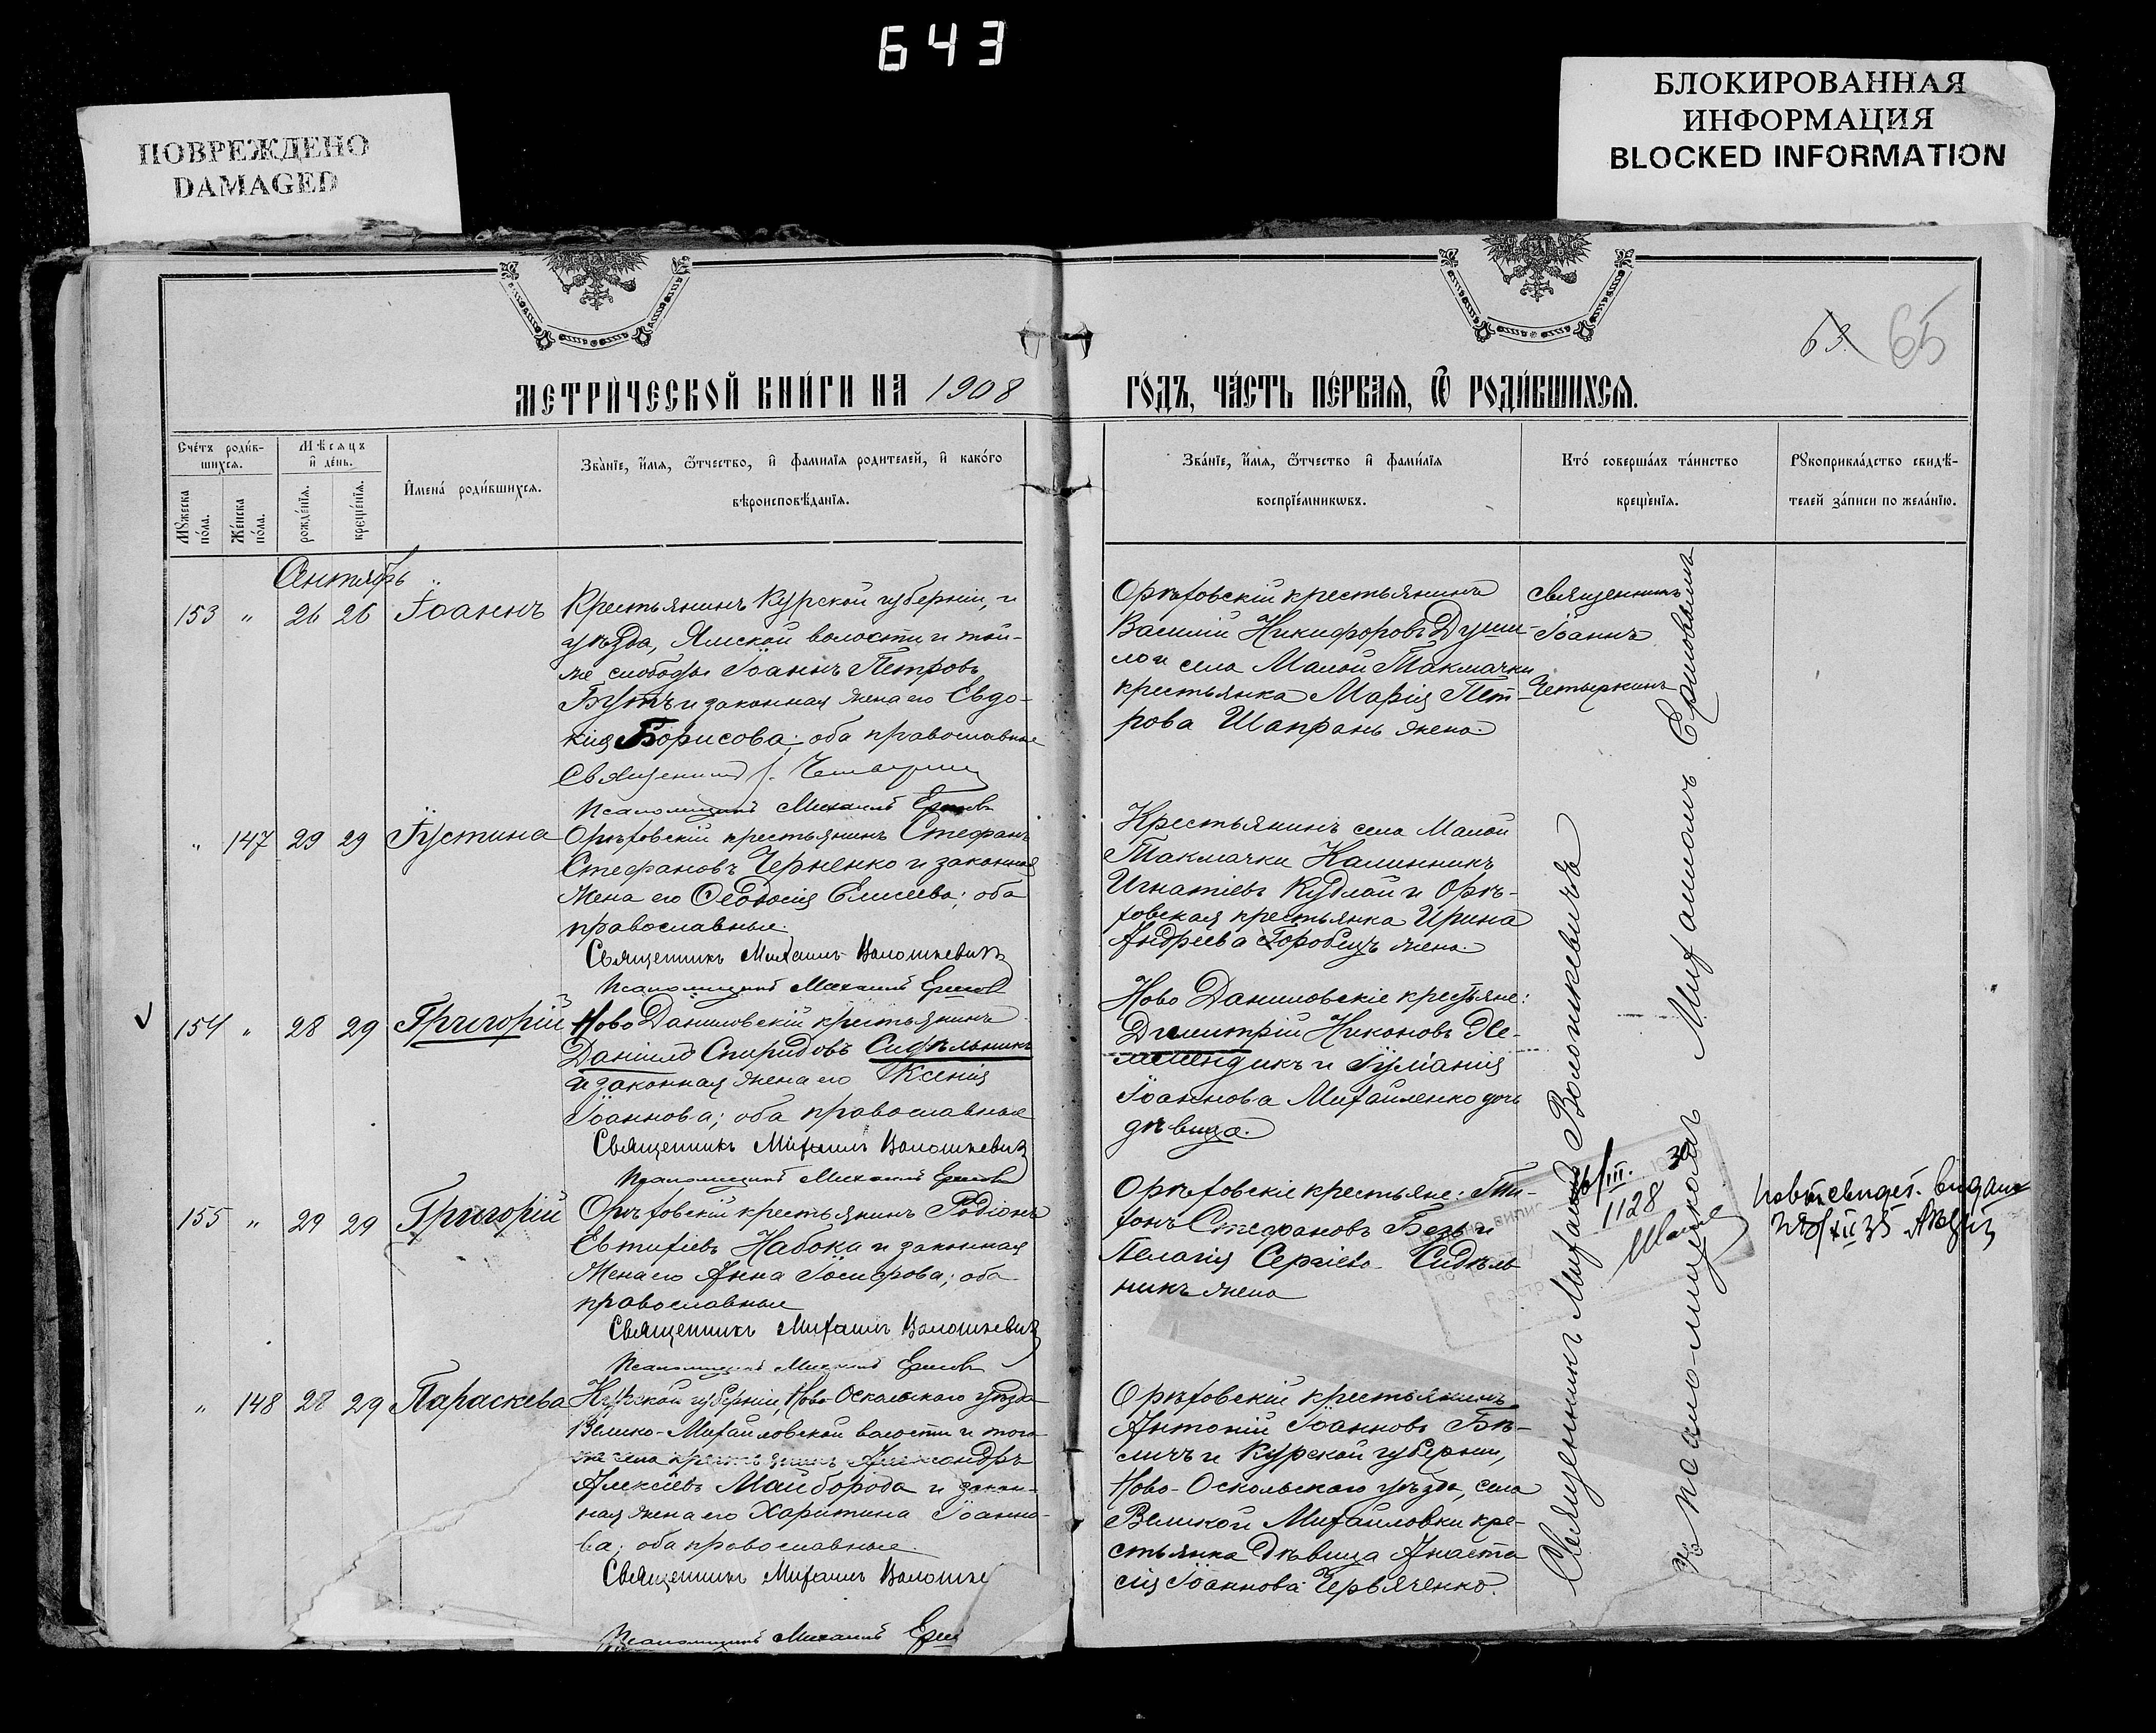 643
ПОВРЕЖДЕНО
DAMAGED
БЛОКИРОВАННАЯ
ИНФОРМАЦИЯ
BLOCKED INFORMATION
63. 65
МЕТРИЧЕСКОЙ КНИГИ НА 1908
ГОДЪ, ЧАСТЬ ПЕРВАЯ, Ѿ РОДИВШИХСЯ.
Счетъ родив-
шихся.
Мѣсяцъ
и день.
Мужеска
пола.
Женска
пола.
рожденїя.
крещенїя.
Имена родившихся.
Званїе, имя, ѻтчество, и фамилїя родителей, и какого
вѣроисповѣданїя.
Званїе, имя, ѻтчество и фамилїя
воспрїемникѡвъ.
Кто совершалъ таинство
крещенїя.
Рукоприкладство свидѣ-
телей записи по желанїю.
Сентябрь
153 " 26 26 Іоаннъ
Крестьянинъ Курской губерніи, и
уѣзда, Ямской волости и той-
же слободы Іоаннъ Петровъ
Бутъ и законная жена его Евдо-
кія Борисова; оба православные
Священникъ І.
Псаломщикъ Михаилъ
Орѣховскій крестьянинъ
Василій Никифоровъ Души-
ло и села Малой Токмачки
крестьянка Марія Пет-
рова Шапранъ жена.
Священникъ
Іоаннъ
Четыркинъ
" 147 29 29 Іустина
Орѣховскій крестьянинъ Стефанъ
Стефановъ Черненко и законная
жена его Ѳеодосія Елисеева; оба
православные.
Священникъ Михаилъ Волошкевичъ
Псаломщикъ Михаилъ
Крестьянинъ села Малой
Токмачки Каллиникъ
Игнатіевъ Кудлай и Орѣ-
ховская крестьянка Ирина
Андреева Горобецъ жена.
154 " 28 29 Григорій
Ново Даниловскій крестьянинъ
Даніилъ Спиридовъ Сидѣльникъ
и законная жена его Ксенія
Іоаннова; оба православные
Священникъ Михаилъ Волошкевичъ
Псаломщикъ Михаилъ
Ново Даниловскіе крестьяне:
Димитрій Никоновъ
и Іуліанія
Іоаннова Михайленко дочь
дѣвица.
155 " 29 29 Григорій
Орѣховскій крестьянинъ Родіонъ
Евтихіевъ Набока и законная
жена его Анна Іосифова; оба
православные
Священникъ Михаилъ Волошкевичъ
Псаломщикъ Михаилъ
Орѣховскіе крестьяне: Ти-
хонъ Стефановъ Безъ и
Пелагія Сергіева Сидѣль
никъ жена
1128
" 148 28 29 Параскева
Курской губерніи, Ново-Оскольскаго уѣзда
Велико-Михайловской волости и того
же села крестьянинъ Александръ
Алексіевъ Майборода и закон-
ная жена его Харитина Іоанно-
ва; оба православные.
Священникъ Михаилъ Волошке
Псаломщикъ Михаилъ
Орѣховскій крестьянинъ
Антоній Іоанновъ Бѣ-
личъ и Курской губерніи,
Ново-Оскольскаго уѣзда, села
Великой Михайловки кре-
стьянка дѣвица Анаста
сія Іоаннова Червяченко.
Священникъ Михаилъ Волошкевичъ
съ псаломщикомъ Михаиломъ